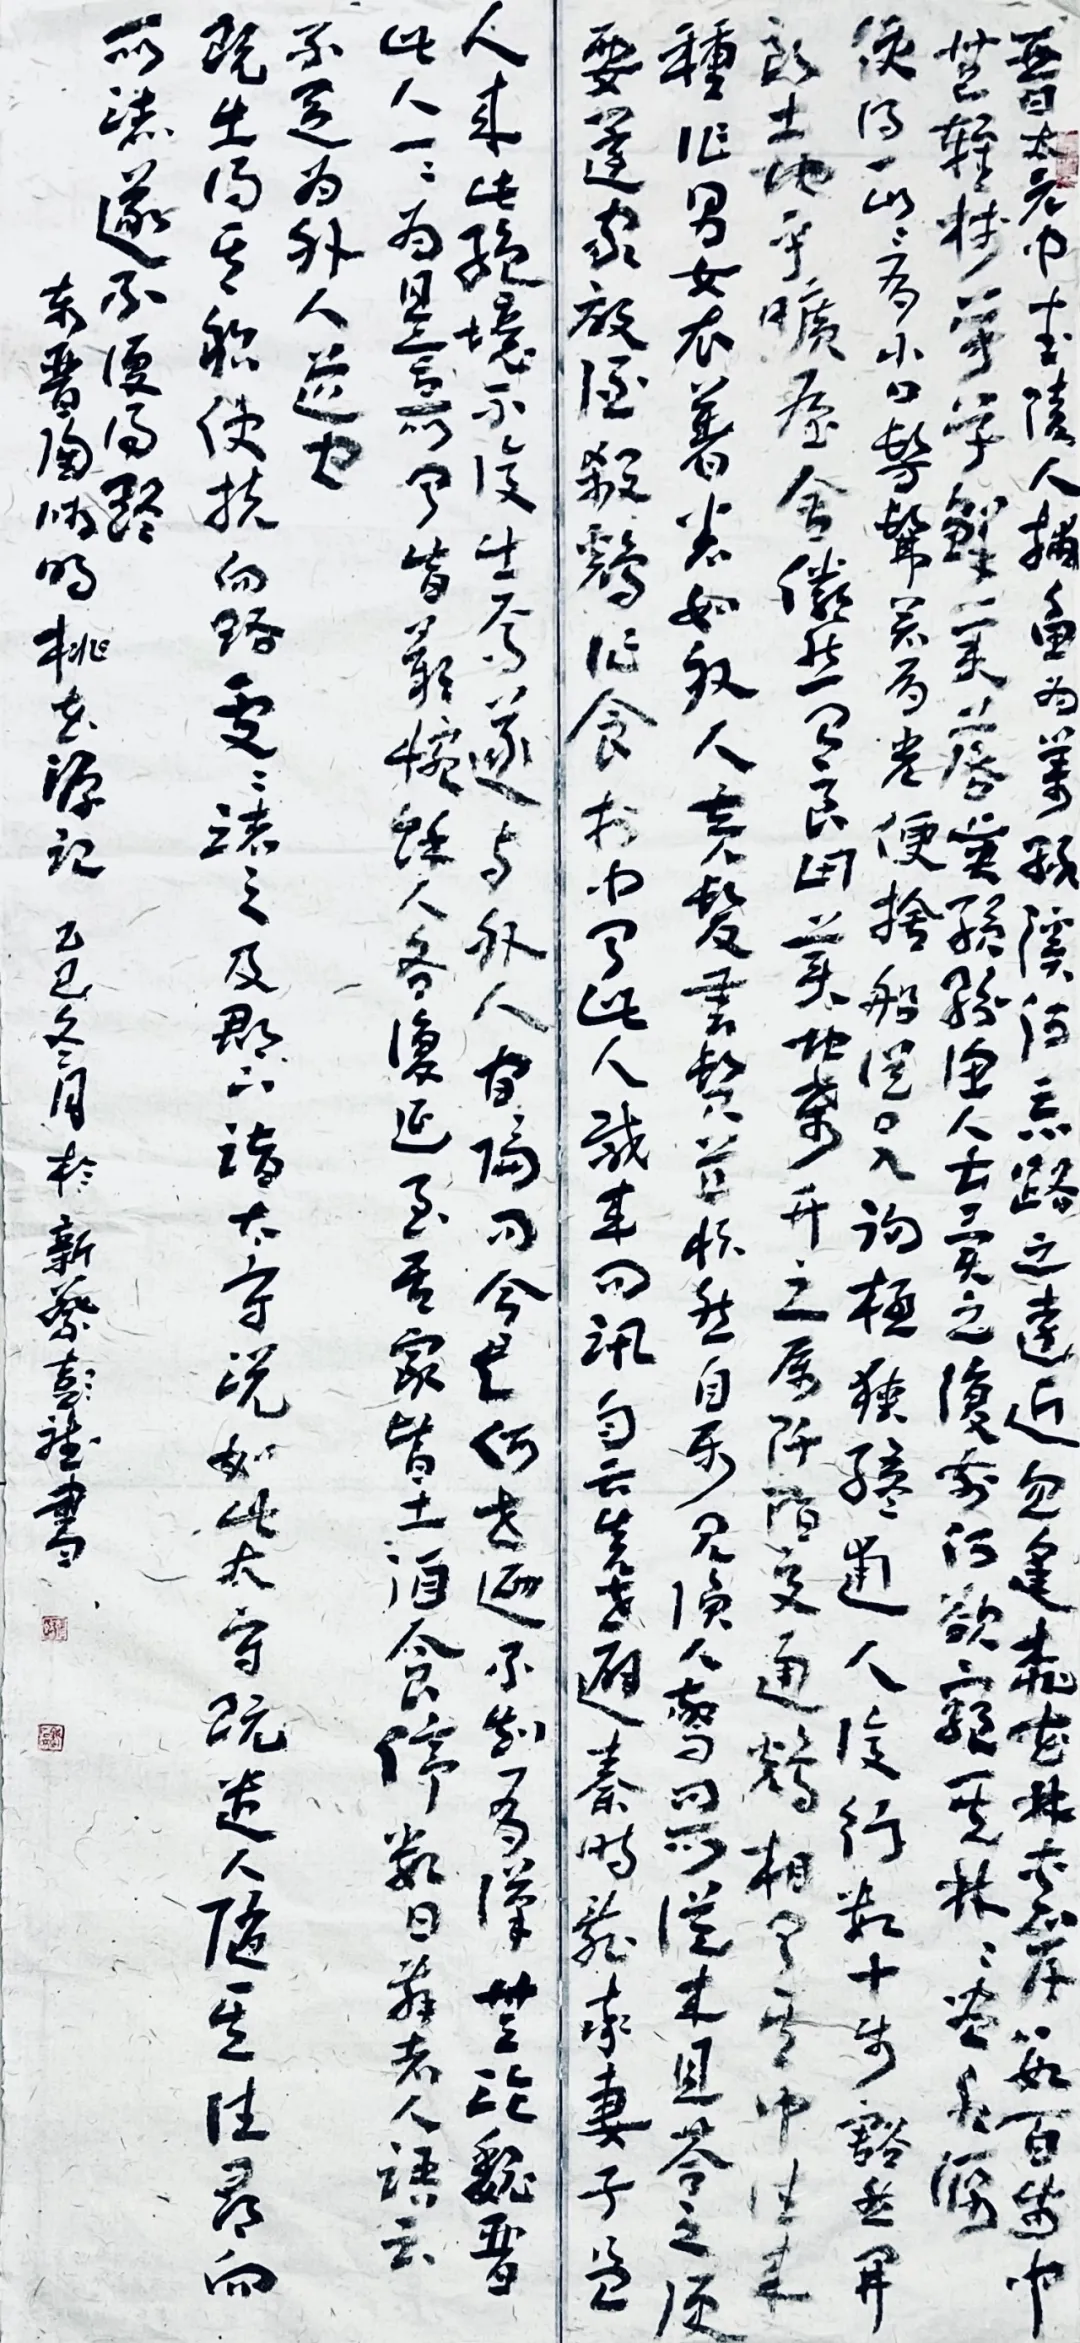 晋太元中武陵人捕鱼为業緣溪行忘路之遠近忽逢桃花林夾岸數百步中
無雜樹芳草鮮美落英繽紛漁人甚異之復前行欲窮其林々盡水源
便得一山々有小口髣髴若有光便捨船從口入初極狹纔通人復行數十步豁然開
朗土地平曠屋舍儼然有良田美地桑竹之属阡陌交通鷄相聞其中往来
種作男女衣著悉如外人黄髮垂髫並怡然自樂見漁人驚問所從来具答之便
要還家設酒殺鷄作食村中聞此人咸来問訊自云先世避秦時亂率妻子邑
人来此絶境不復出焉遂与外人间隔问今是何世廼不知有漢無論魏晋
此人一々为具言所闻皆嘆惋餘人各復延至其家皆出酒食停數日辞去人語云
不足为外人道也
既出得其船便扶向路處々誌之及郡下詣太守说如此太守既遣人隨其往尋向
所誌遂不復得路
东晋陶渊明桃花源记 乙巳冬月於新蔡彭書